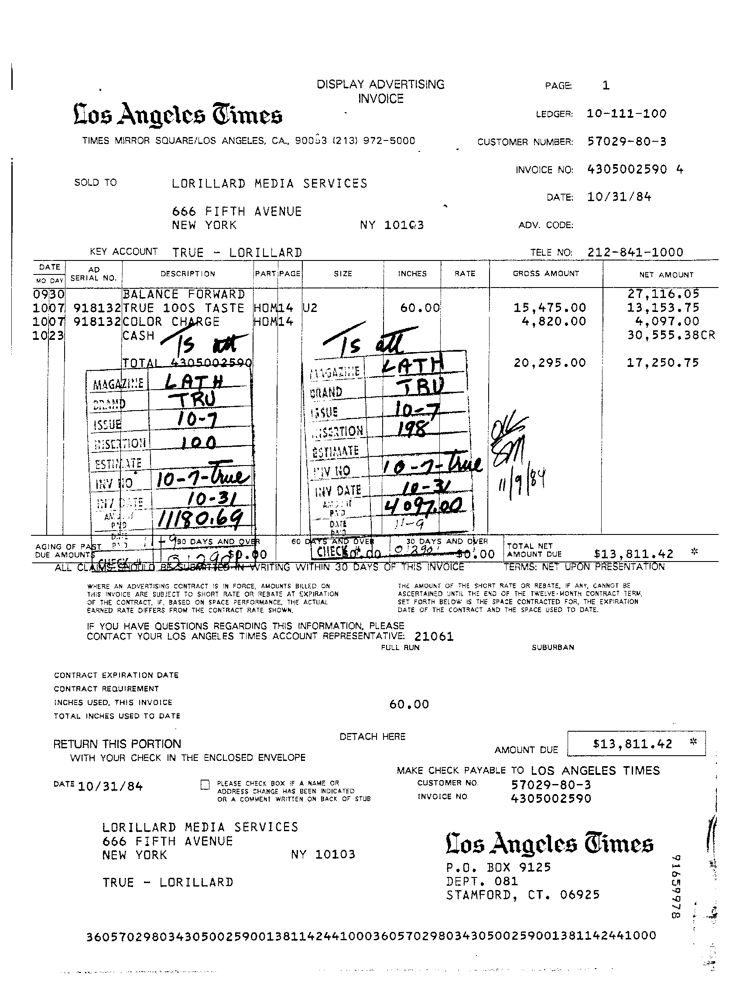 DISPLAY ADVERTISING
INVOICE
PAGE: 1
Los Angeles Times
LEDGER: 10-111-100
TIMES MIRROR SQUARE/LOS ANGELES, CA., 90053 (213) 972-5000
CUSTOMER NUMBER: 57029-80-3
INVOICE NO: 4305002590 4
SOLD TO LORILLARD MEDIA SERVICES
DATE: 10/31/84
666 FIFTH AVENUE
NEW YORK NY 10103 ADV. CODE:
KEY ACCOUNT TRUE - LORILLARD TELE NO: 212-841-1000
DATE MO DAY AD SERIAL NO. DESCRIPTION PART PAGE SIZE INCHES RATE GROSS AMOUNT NET AMOUNT
0930 BALANCE FORWARD 27,116.05
1007 918132 TRUE 100S TASTE HOM14 U2 60.00 15,475.00 13,153.75
1007 918132 COLOR CHARGE HOM14 4,820.00 4,097.00
1023 CASH 30,555.38CR
TOTAL 4305002590 20,295.00 17,250.75
MAGAZINE LATH
BRAND TRU
ISSUE 10-7
INSERTION 100
ESTIMATE
INV NO 10-7-true
INV DATE 10-31
11180.69
MAGAZINE LATH
BRAND TRU
ISSUE 10-7
INSERTION 198
ESTIMATE
INV NO 10-7-true
INV DATE 10-31
4097.00
DATE PAID 11-9
CHECK
OK
SM
11/9/84
AGING OF PAST DUE AMOUNTS 90 DAYS AND OVER 60 DAYS AND OVER 30 DAYS AND OVER TOTAL NET AMOUNT DUE $13,811.42 *
ALL CLAIMS SHOULD BE SUBMITTED IN WRITING WITHIN 30 DAYS OF THIS INVOICE TERMS: NET UPON PRESENTATION
WHERE AN ADVERTISING CONTRACT IS IN FORCE, AMOUNTS BILLED ON
THIS INVOICE ARE SUBJECT TO SHORT RATE OR REBATE AT EXPIRATION
OF THE CONTRACT, IF, BASED ON SPACE PERFORMANCE, THE ACTUAL
EARNED RATE DIFFERS FROM THE CONTRACT RATE SHOWN.
THE AMOUNT OF THE SHORT RATE OR REBATE, IF ANY, CANNOT BE
ASCERTAINED UNTIL THE END OF THE TWELVE-MONTH CONTRACT TERM,
SET FORTH BELOW IS THE SPACE CONTRACTED FOR, THE EXPIRATION
DATE OF THE CONTRACT AND THE SPACE USED TO DATE.
IF YOU HAVE QUESTIONS REGARDING THIS INFORMATION, PLEASE
CONTACT YOUR LOS ANGELES TIMES ACCOUNT REPRESENTATIVE: 21061
FULL RUN SUBURBAN
CONTRACT EXPIRATION DATE
CONTRACT REQUIREMENT
INCHES USED, THIS INVOICE 60.00
TOTAL INCHES USED TO DATE
DETACH HERE
RETURN THIS PORTION
WITH YOUR CHECK IN THE ENCLOSED ENVELOPE
AMOUNT DUE $13,811.42 *
MAKE CHECK PAYABLE TO LOS ANGELES TIMES
DATE 10/31/84
PLEASE CHECK BOX IF A NAME OR
ADDRESS CHANGE HAS BEEN INDICATED
OR A COMMENT WRITTEN ON BACK OF STUB
CUSTOMER NO. 57029-80-3
INVOICE NO. 4305002590
LORILLARD MEDIA SERVICES
666 FIFTH AVENUE
NEW YORK NY 10103
TRUE - LORILLARD
Los Angeles Times
P.O. BOX 9125
DEPT. 081
STAMFORD, CT. 06925
91659978
36057029803430500259001381142441000360570298034305002590013811424​41000